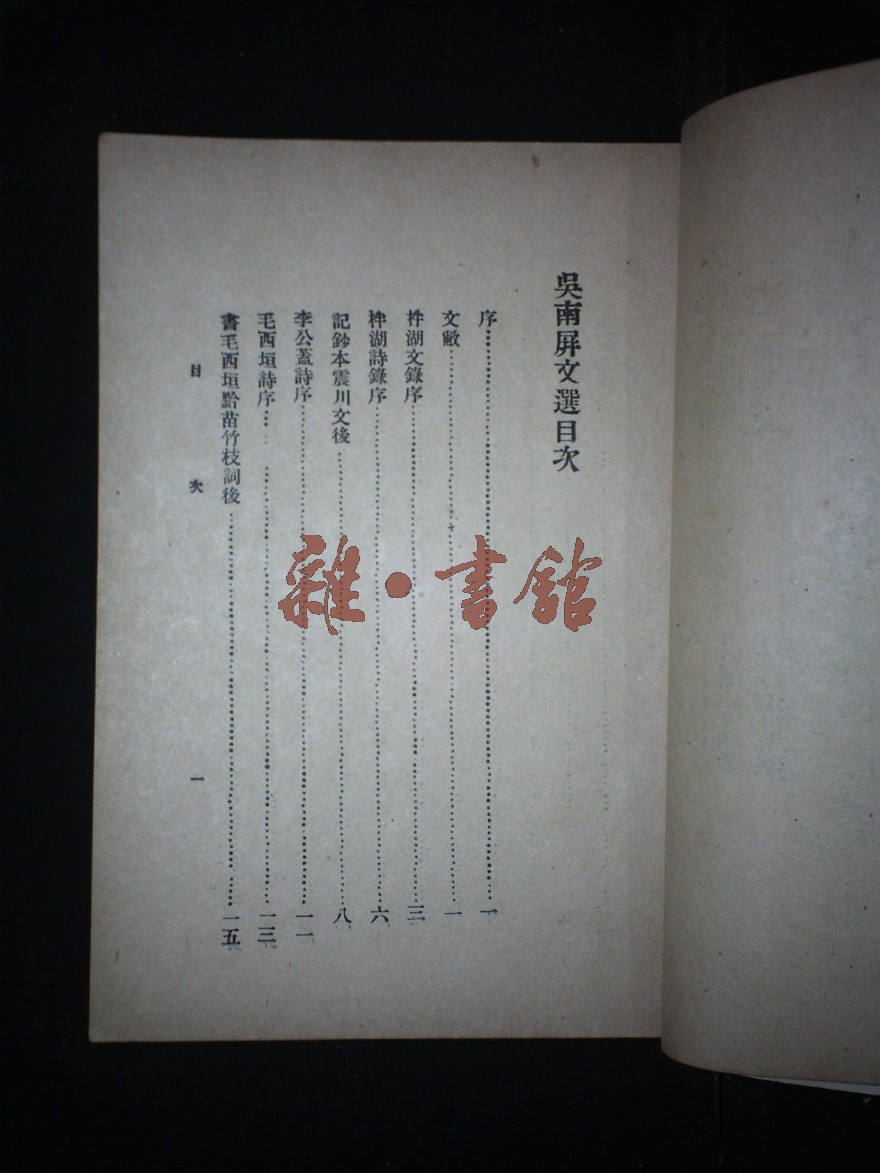 吳南屛文選目次
序………一
文敝………一
柈湖文錄序………三
柈湖詩錄序………六
記鈔本震川文後………八
李公蓋詩序………一一
毛西垣詩序………一三
書毛西垣黔苗竹枝詞後………一五
目次 一
雜·書館